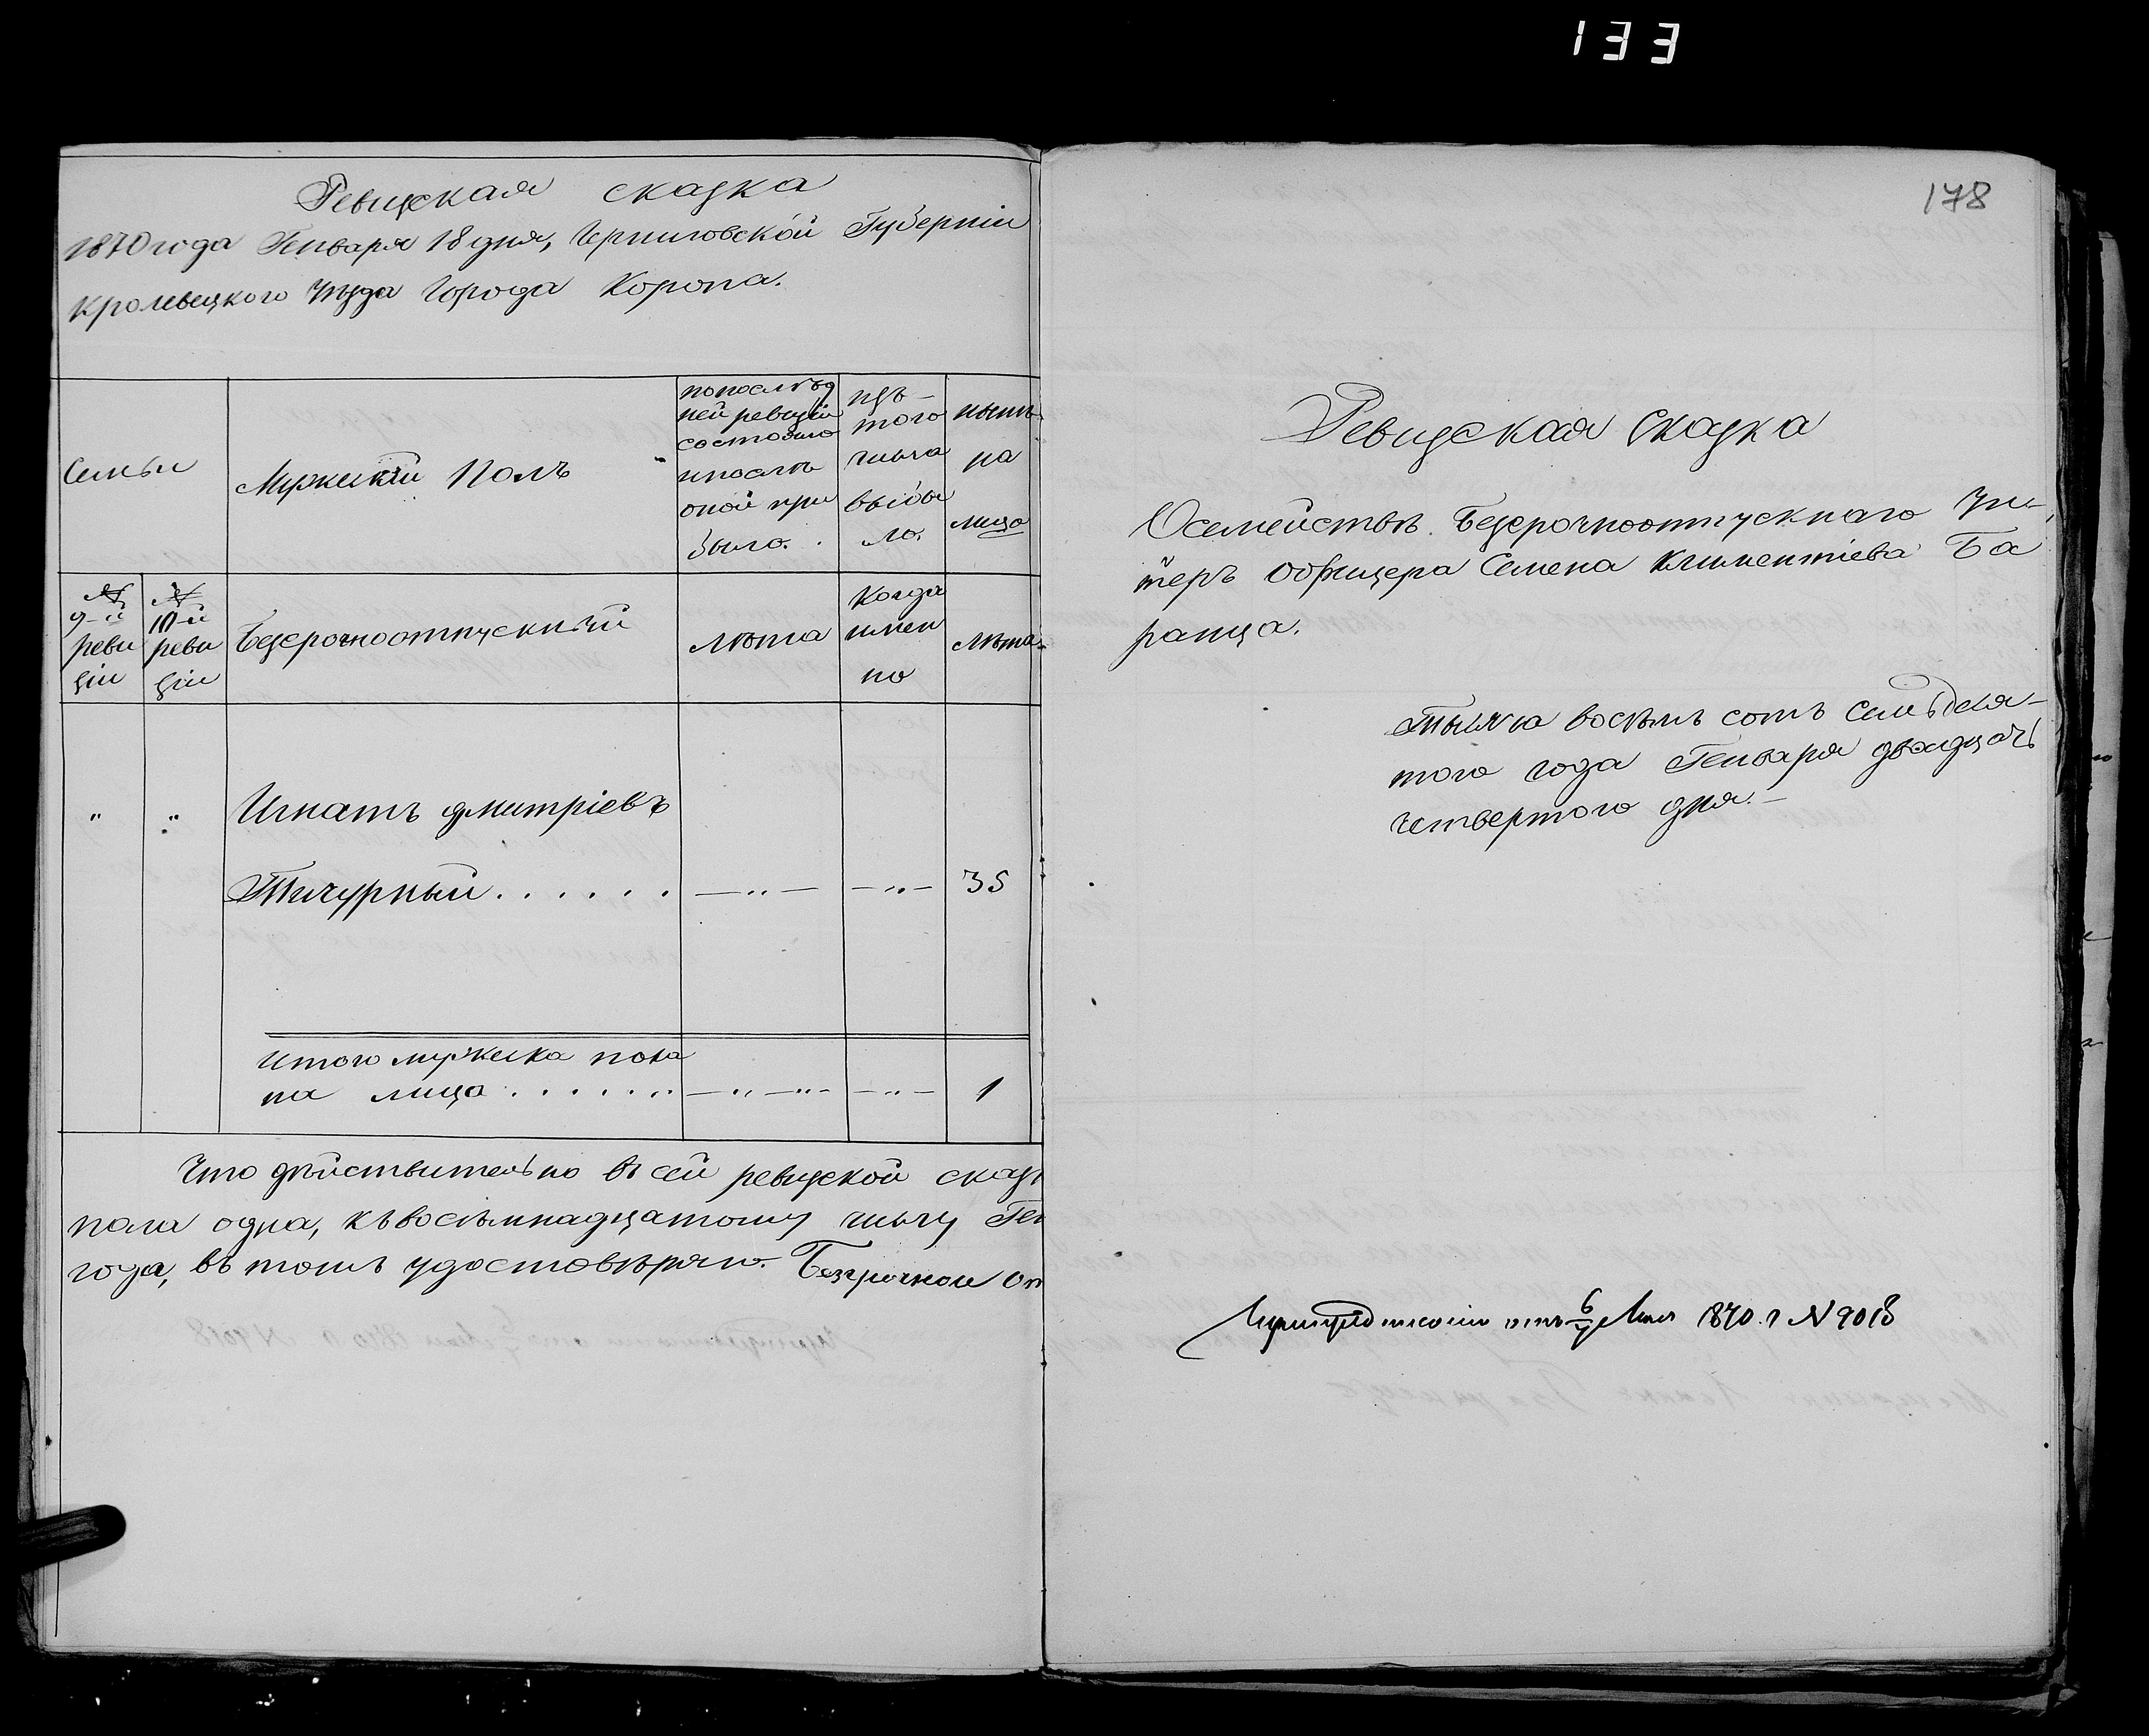 133
Ревизская сказка
1870 года Генваря 18 дня, Черниговской Губерніи
Кролевецкого Уѣзда Города Коропа.
Семьи
Мужскій Полъ
по послѣд
ней ревизіи
состояло
и послѣ
оной при
было.
изъ
того
числа
выбы
ло.
нынѣ
на
лицо
№ 9-й реви зіи
№ 10-й реви зіи
Безсрочноотпускный
лѣта
Когда имен но
лѣта
" " Игнатъ Дмитріевъ
Тичурный . . . . . . — " — — " — 35
Итого мужска пола
на лицо . . . . . . — " — " — — " — 1
Что дѣйствительно въ сей ревизской сказ
пола одна, къ восѣмнадцатому числу Ген
года, въ томъ удостовѣряю. Безсрочной От
178
Ревизская Сказка
О семействѣ Безсрочноотпускнаго Ун-
теръ Оофицера Семена Климентіева Ба
ранца.
Тысяча восѣмъ сотъ Семьдеся-
того года Генваря двадцать
четвертого дня.-
при отъ 6/7 Мая 1870 г № 9018